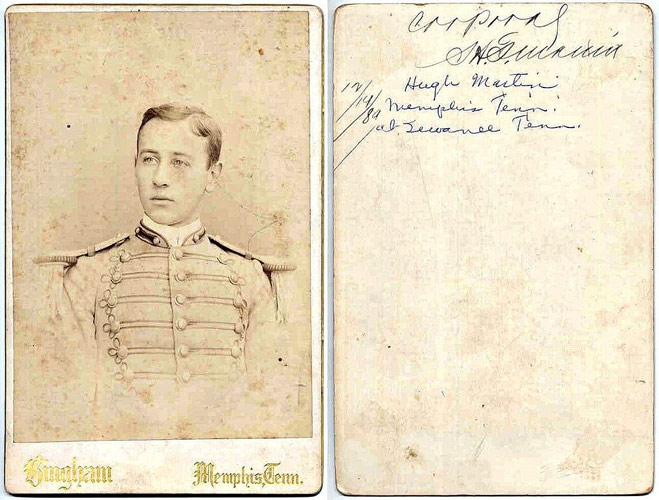 Bingham
Memphis, Tenn.
Corporal
Hugh Martin
Memphis Tenn.
at Sewanee Tenn.
12/14/89